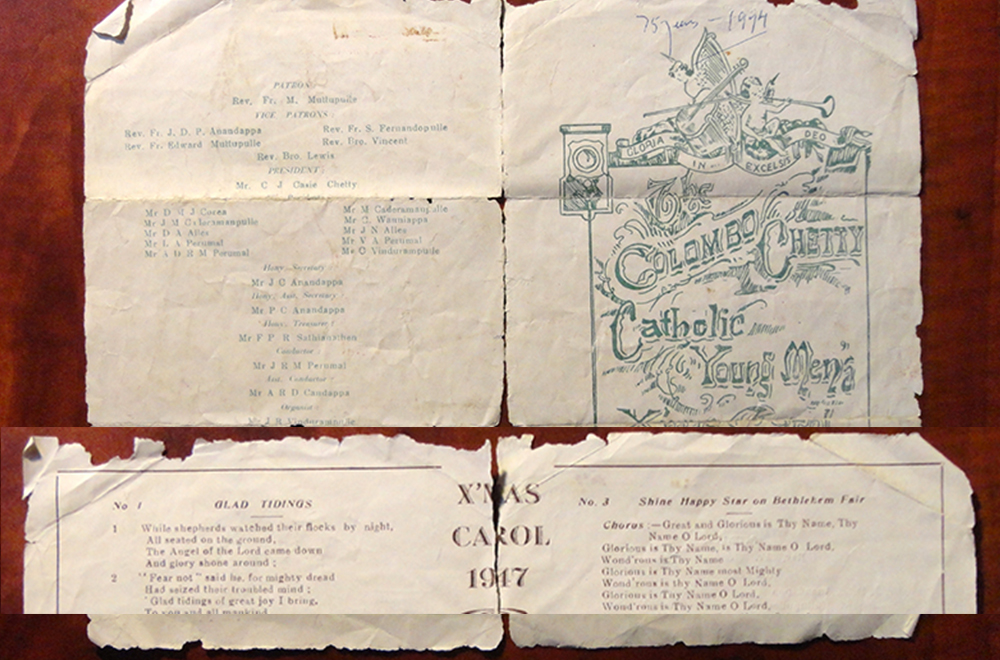 75 years - 1994
PATRON
Rev. Fr. M. Muttupulle
VICE PATRONS
Rev. Fr. J. D. P. Anandappa
Rev. Fr. S. Fernandopulle
Rev. Fr. Edward Muttupulle
Rev. Bro. Vincent
Rev. Bro. Lewis
PRESIDENT
Mr. C J Casie Chetty
Mr D M J Corea
Mr M Caderamanpulle
Mr J M Caderamanpulle
Mr C. Wanniappa
Mr D A Alles
Mr J N Alles
Mr L A Perumal
Mr V A Perumal
Mr A D R M Perumal
Mr C Vinduranpulle
Hony. Secretary
Mr J C Anandappa
Hony. Asst. Secretary
Mr P C Anandappa
Hony. Treasurer
Mr F P R Sathianathan
Conductor
Mr J E M Perumal
Asst. Conductor
Mr A R D Candappa
Organist
GLORIA IN EXCELSIS DEO
The
COLOMBO CHETTY
Catholic
Young Men's
No 1 GLAD TIDINGS
1 While shepherds watched their flocks by night,
All seated on the ground,
The Angel of the Lord came down
And glory shone around ;
2 "Fear not" said he, for mighty dread
Had seized their troubled mind ;
'Glad tidings of great joy I bring,
To you and all mankind
X'MAS
CAROL
1947
No. 3 Shine Happy Star on Bethlehem Fair
Chorus :—Great and Glorious is Thy Name, Thy
Name O Lord,
Glorious is Thy Name, is Thy Name O Lord,
Wond'rous is Thy Name
Glorious is Thy Name most Mighty
Wond'rous is thy Name O Lord,
Glorious is Thy Name O Lord,
Wond'rous is Thy Name O Lord,